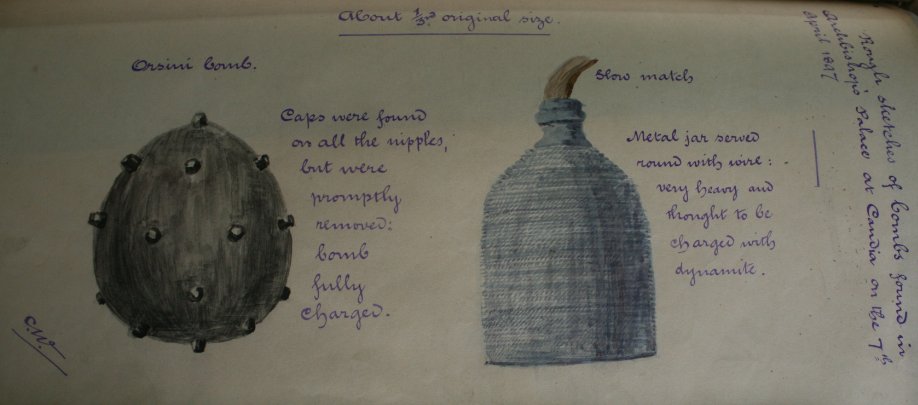 About 1/3rd original size.
Orsini bomb.
Caps were found
on all the nipples,
but were
promptly
removed:
bomb
fully
charged.
Slow match
Metal jar served
round with wire:
very heavy and
thought to be
charged with
dynamite.
Rough sketches of bombs found in
Archbishop's Palace at Candia on the 7th
April 1897